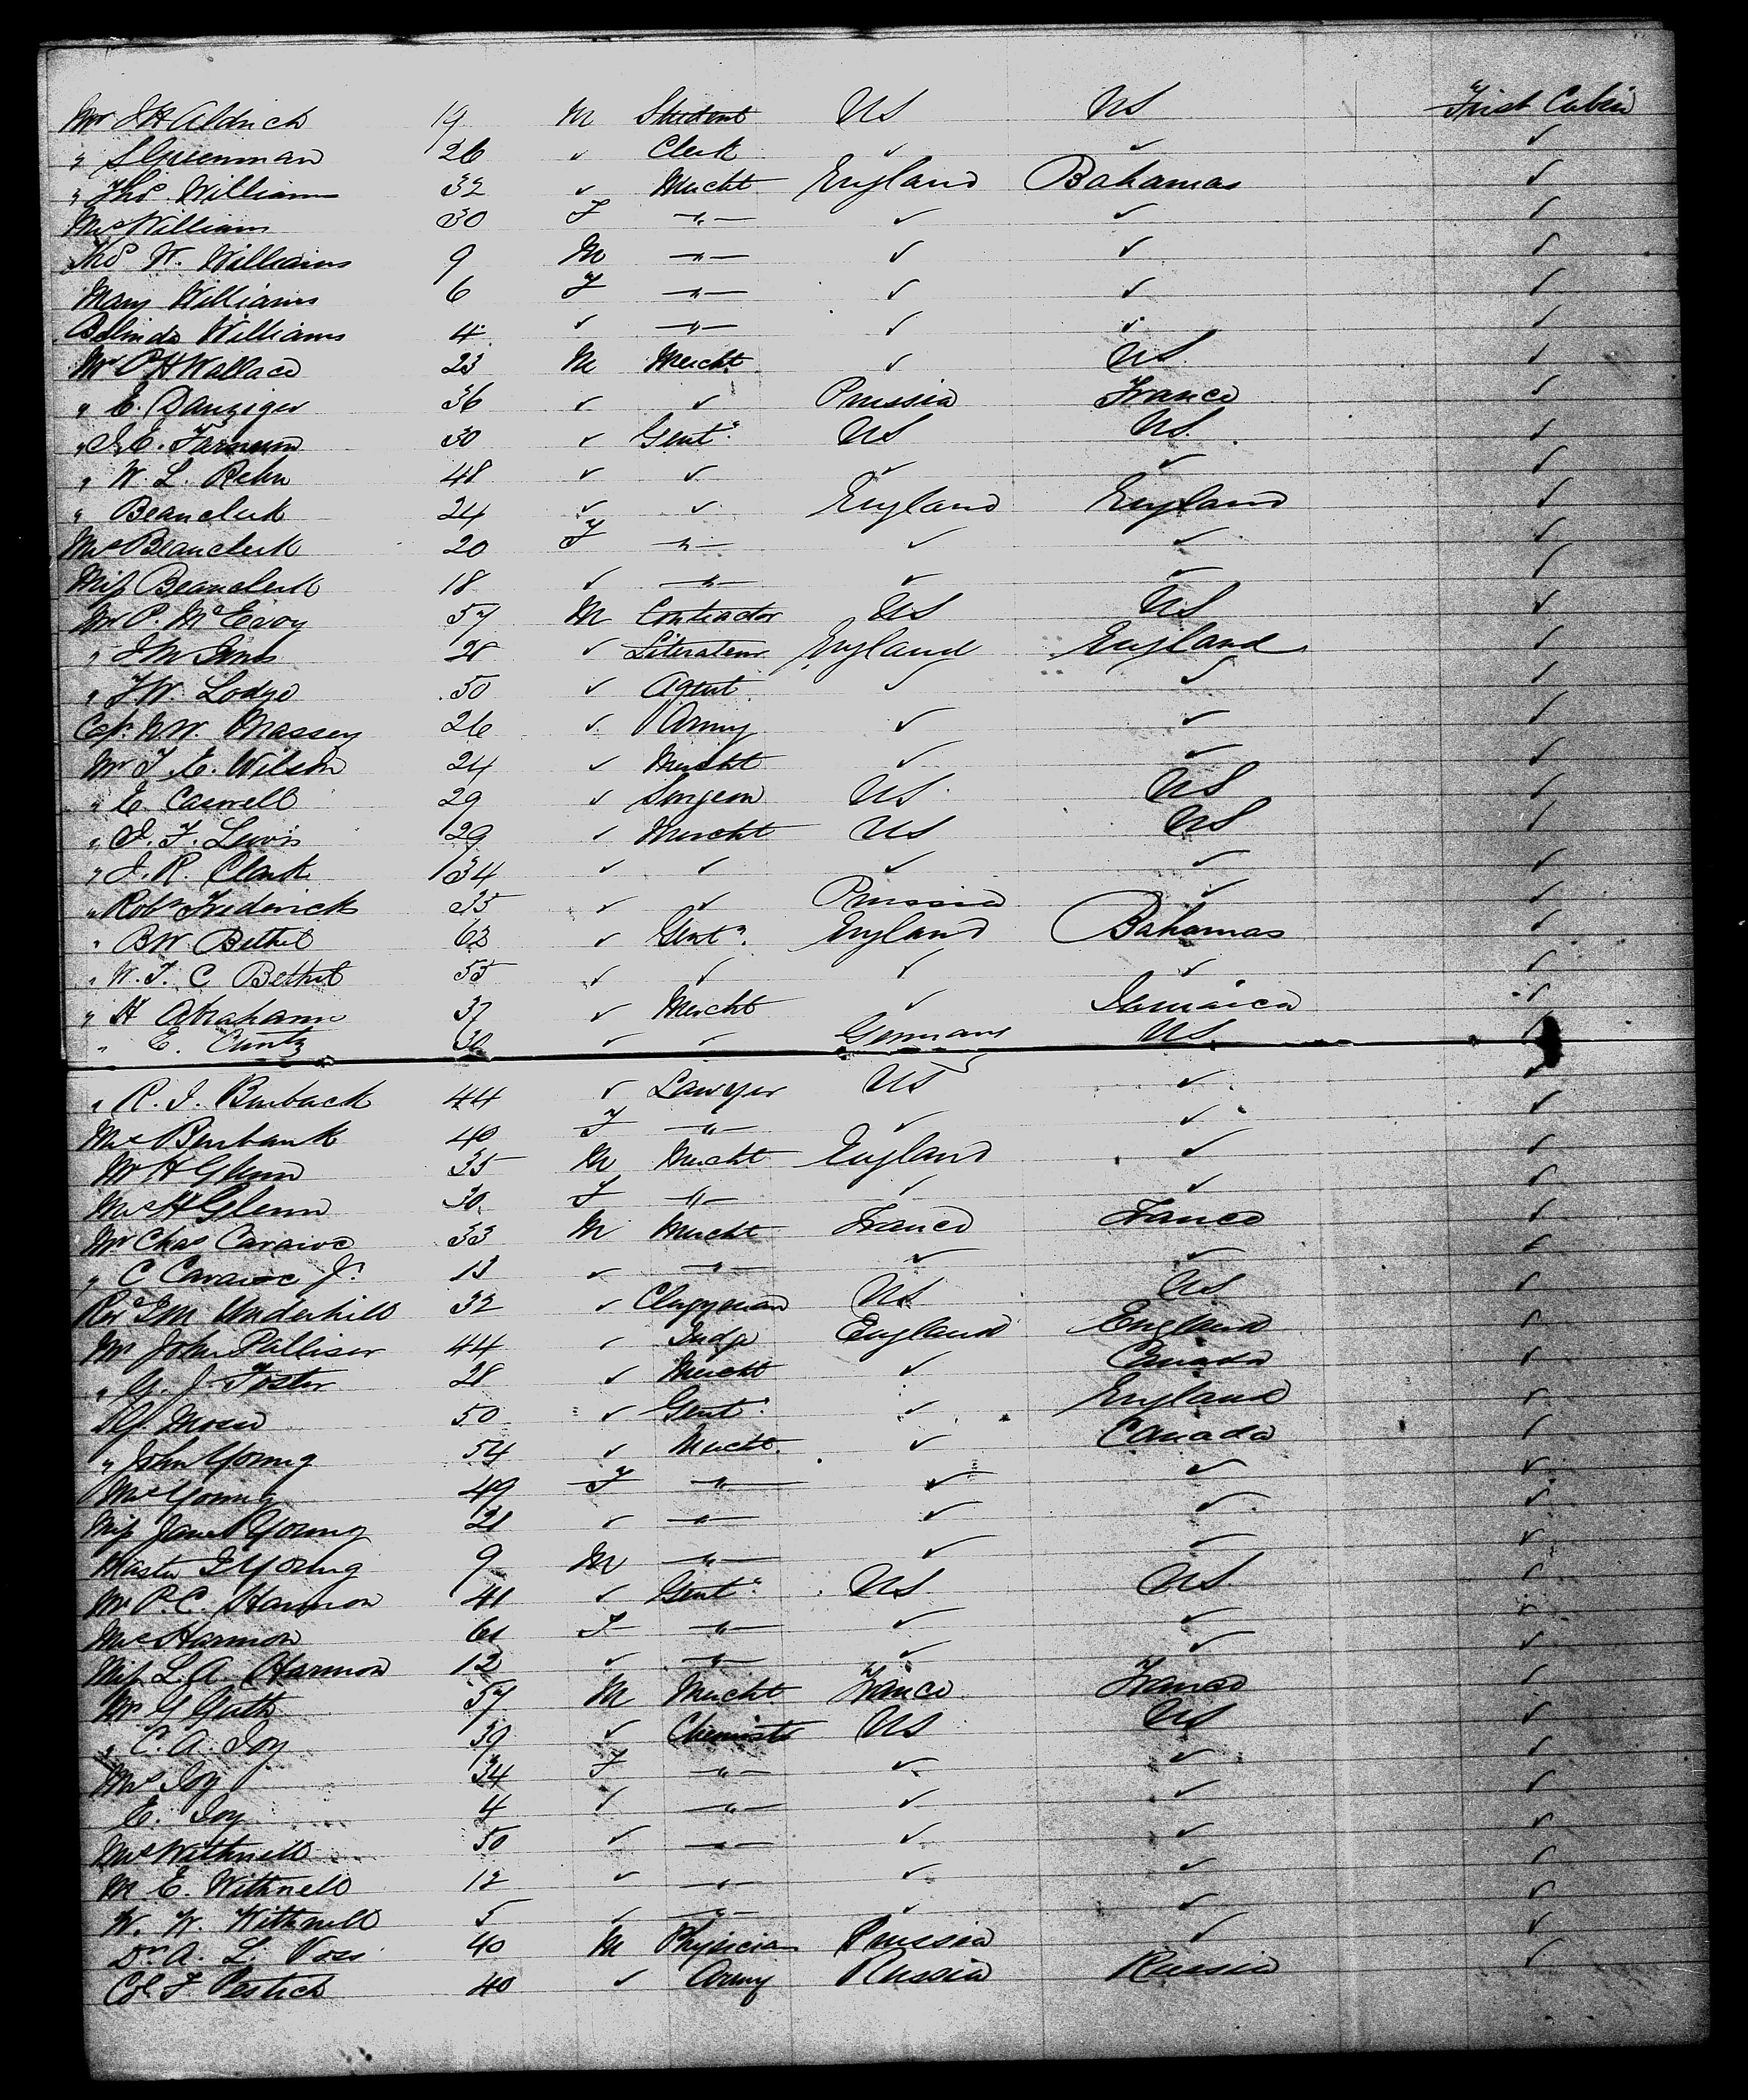 Mr J H Aldrich 19 M Student US US First Cabin
" S Greenman 26 ✓ Clerk ✓ ✓ ✓
" Thos Williams 32 ✓ Mercht England Bahamas ✓
Mrs William 30 F —"— ✓ ✓ ✓
Thos W. Williams 9 M —"— ✓ ✓ ✓
Mary Williams 6 F —"— ✓ ✓ ✓
Belinda Williams 4 ✓ —"— ✓ ✓ ✓
Mr P H Wallace 23 M Mercht ✓ US ✓
" E. Danziger 36 ✓ ✓ Prussia France ✓
" J. E. Farnum 30 ✓ Gentn US US ✓
" W. L. Rehn 48 ✓ ✓ ✓ ✓ ✓
" Beauclerk 24 ✓ ✓ England England ✓
Mrs Beauclerk 20 F —"— ✓ ✓ ✓
Miss Beauclerk 18 ✓ —"— ✓ ✓ ✓
Mr P. McEvoy 57 M Contractor US US ✓
" J M 28 ✓ Literateur England England ✓
" F W. Lodge 50 ✓ Agent ✓ ✓ ✓
Capt Massey 26 ✓ Army ✓ ✓ ✓
Mr T. E. Wilson 24 ✓ Mercht ✓ ✓ ✓
" E Caswell 29 ✓ Surgeon US US ✓
" J. F. Lewis 29 ✓ Mercht US US ✓
" J. R. Clark 34 ✓ ✓ ✓ ✓ ✓
" Robt Frederick 35 ✓ ✓ Prussia ✓ ✓
" B W. Bethel 62 ✓ Gentn England Bahamas ✓
" W. T. C Bethel 55 ✓ ✓ ✓ ✓ ✓
" H Abrahams 37 ✓ Mercht ✓ Jamaica ✓
" E. Cuntz 30 ✓ ✓ Germany US ✓
" R. J. Burback 44 ✓ Lawyer US ✓ ✓
Mrs Burbank 40 F —"— ✓ ✓ ✓
Mr H Glenn 35 M Mercht England ✓ ✓
Mrs H Glenn 30 F —"— ✓ ✓ ✓
Mr Chas 33 M Mercht France France ✓
" C Jr. 13 ✓ —"— ✓ ✓ ✓
Revd Underhill 32 ✓ Clergyman US US ✓
Mr John Palliser 44 ✓ Judge England England ✓
" G. J. Foster 28 ✓ Mercht ✓ Canada ✓
50 ✓ Gentn ✓ England ✓
" John Young 54 ✓ Mercht ✓ Canada ✓
Mrs Young 49 F —"— ✓ ✓ ✓
Miss Janet Young 21 ✓ —"— ✓ ✓ ✓
Master J Young 9 M —"— ✓ ✓ ✓
Mr P. C. Harmon 41 ✓ Gentn US US ✓
Mrs Harmon 61 F —"— ✓ ✓ ✓
Miss L. A. Harmon 12 ✓ —"— ✓ ✓ ✓
Mr G Guth 57 M Mercht France France ✓
" C. A. Joy 39 ✓ Chemist US US ✓
Mrs Joy 34 F —"— ✓ ✓ ✓
E. Joy 4 ✓ —"— ✓ ✓ ✓
Mrs Withnell 50 ✓ —"— ✓ ✓ ✓
M E. Withnell 12 ✓ —"— ✓ ✓ ✓
W. W. Withnell 5 ✓ —"— ✓ ✓ ✓
Dr A. L. Voss 40 M Physician Prussia ✓ ✓
Col F 40 ✓ Army Russia Russia ✓